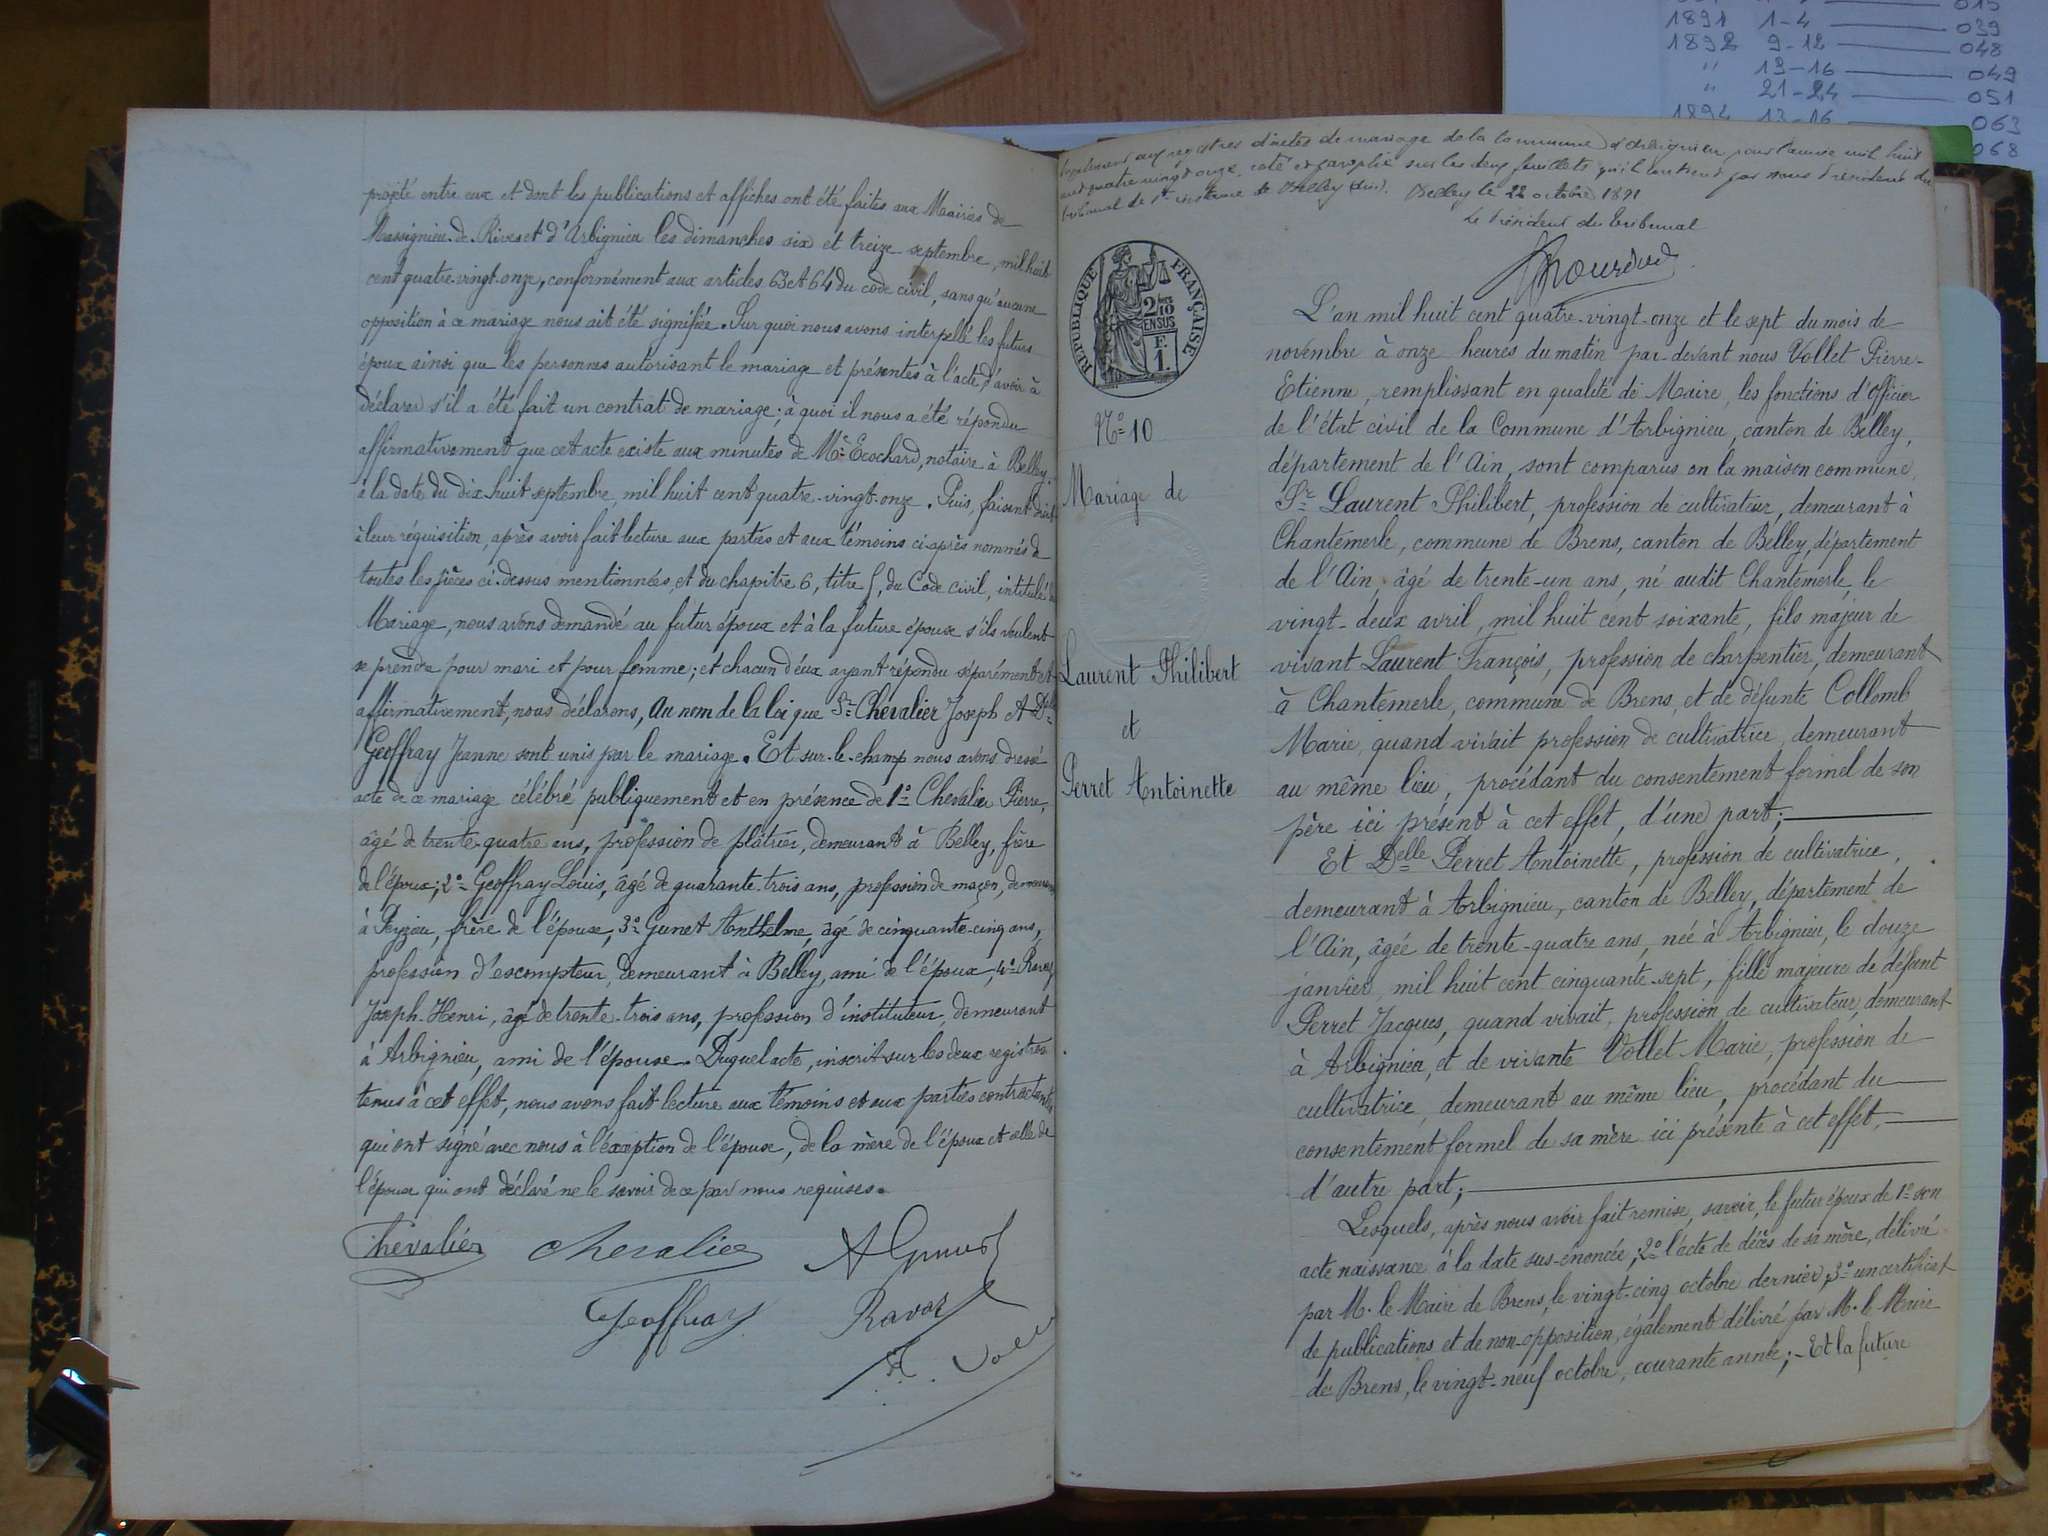 projeté entre eux et dont les publications et affiches ont été faites aux Mairies de
Massignieu-de-Rives et d'Arbignieu les dimanches six et treize septembre, mil huit
cent quatre-vingt-onze, conformément aux articles 63 et 64 du code civil, sans qu'aucune
opposition à ce mariage nous ait été signifiée. Sur quoi nous avons interpellé les futurs
époux ainsi que les personnes autorisant le mariage et présentes à l'acte, d'avoir à
déclarer s'il a été fait un contrat de mariage; à quoi il nous a été répondu
affirmativement que cet acte existe aux minutes de Me Ecochard, notaire à Belley,
à la date du dix-huit septembre, mil huit cent quatre-vingt-onze. Puis, faisant droit
à leur réquisition, après avoir fait lecture aux parties et aux témoins ci-après nommés de
toutes les pièces ci-dessus mentionnées, et du chapitre 6, titre 5, du Code civil, intitulé du
Mariage, nous avons demandé au futur époux et à la future épouse s'ils veulent
se prendre pour mari et pour femme; et chacun d'eux ayant répondu séparément et
affirmativement, nous déclarons, Au nom de la loi que Sr Chevalier Joseph et Delle
Geoffray Jeanne sont unis par le mariage. Et sur-le-champ nous avons dressé
acte de ce mariage célébré publiquement et en présence de 1º Chevalier Pierre,
âgé de trente-quatre ans, profession de plâtrier, demeurant à Belley, frère
de l'époux; 2º Geoffray Louis, âgé de quarante-trois ans, profession de maçon, demeurant
à Peyzieu, frère de l'épouse, 3º Gunet Anthelme, âgé de cinquante-cinq ans,
profession d'escompteur, demeurant à Belley, ami de l'époux, 4º Ravoz
Joseph-Henri, âgé de trente-trois ans, profession d'instituteur, demeurant
à Arbignieu, ami de l'épouse. Duquel acte, inscrit sur les deux registres
tenus à cet effet, nous avons fait lecture aux témoins et aux parties contractantes
qui ont signé avec nous à l'exception de l'épouse, de la mère de l'époux et celle de
l'épouse qui ont déclaré ne le savoir de ce par nous requises.
Chevalier Chevalier A Gunet
Geoffray Ravoz
1891 1-4 039
1892 9-12 048
" 13-16 049
" 21-24 051
1894 13-16 063
068
aux registres d'actes de mariage de la commune d'Arbignieu pour l'année mil huit
cent quatre vingt onze, coté et paraphé sur les deux feuillets qu'il contient par nous Président du
tribunal de 1re instance de Belley (Ain). Belley le 22 octobre 1891
Le Président du tribunal
RÉPUBLIQUE FRANÇAISE
2/10
EN SUS
F.
1.
Nº 10
Mariage de
Laurent Philibert
et
Perret Antoinette
L'an mil huit cent quatre-vingt-onze et le sept du mois de
novembre à onze heures du matin par-devant nous Vollet Pierre-
Etienne, remplissant en qualité de Maire, les fonctions d'officier
de l'état civil de la Commune d'Arbignieu, canton de Belley,
département de l'Ain, sont comparus en la maison commune,
Sr Laurent Philibert, profession de cultivateur, demeurant à
Chantemerle, commune de Brens, canton de Belley, département
de l'Ain, âgé de trente-un ans, né audit Chantemerle, le
vingt-deux avril, mil huit cent soixante, fils majeur de
vivant Laurent François, profession de charpentier, demeurant
à Chantemerle, commune de Brens, et de défunte Collomb
Marie, quand vivait profession de cultivatrice, demeurant
au même lieu, procédant du consentement formel de son
père ici présent à cet effet, d'une part;
Et Delle Perret Antoinette, profession de cultivatrice,
demeurant à Arbignieu, canton de Belley, département de
l'Ain, âgée de trente-quatre ans, née à Arbignieu, le douze
janvier, mil huit cent cinquante-sept, fille majeure de défunt
Perret Jacques, quand vivait, profession de cultivateur, demeurant
à Arbignieu, et de vivante Vollet Marie, profession de
cultivatrice, demeurant au même lieu, procédant du
consentement formel de sa mère ici présente à cet effet,
d'autre part;
Lesquels, après nous avoir fait remise, savoir, le futur époux de 1º son
acte naissance à la date sus-énoncée; 2º l'acte de décès de sa mère, délivré
par M. le Maire de Brens, le vingt-cinq octobre dernier, 3º un certificat
de publications et de non-opposition, également délivré par M. le Maire
de Brens, le vingt-neuf octobre, courante année; - Et la future